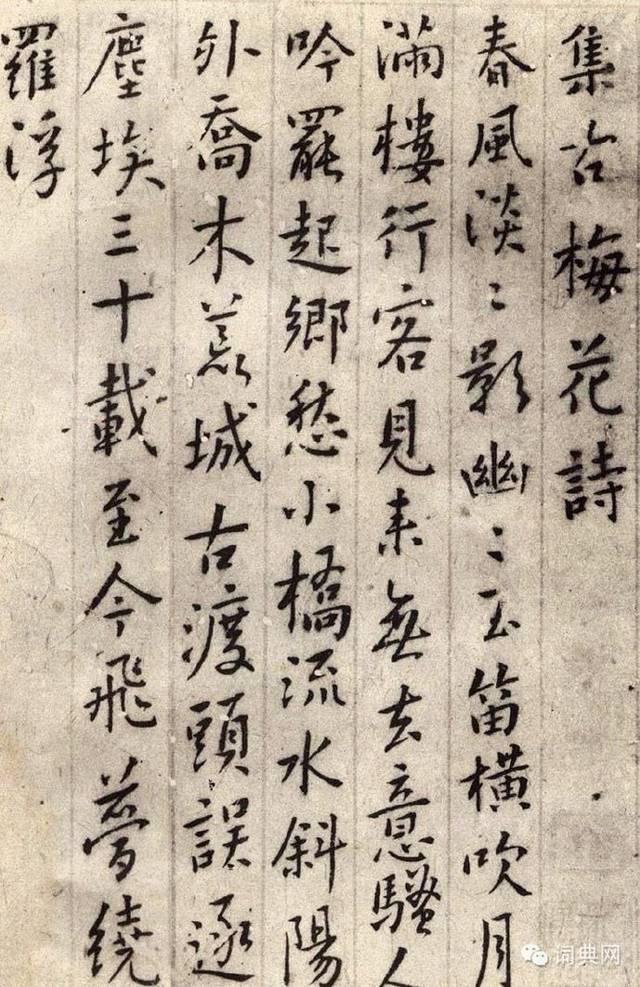 集古梅花詩
春風淡〻影幽〻玉笛橫吹月
滿樓行客見來無去意騷人
吟罷起鄉愁小橋流水斜陽
外喬木荒城古渡頭誤逐
塵埃三十載至今飛夢繞
羅浮
词典网